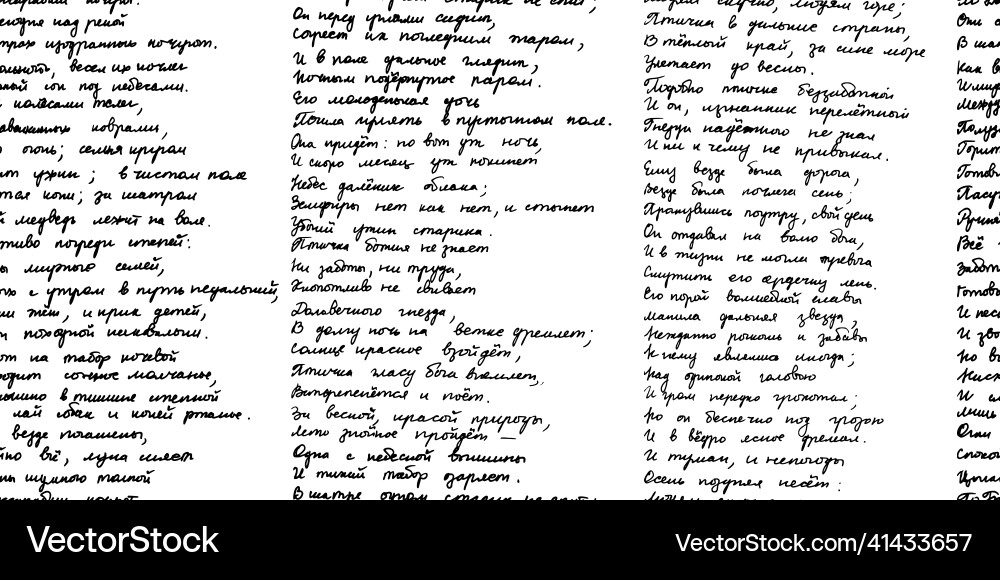 егодня над рекой
трах изодранных ночуют.
ольность, весел их ночлег
ный сон под небесами.
колёсами телег,
коврами,
огонь; семья кругом
ит ужин; в чистом поле
кони; за шатром
й медведь лежит на воле.
живо посреди степей:
ы мирных семей,
ых с утром в путь недальний,
жён, и крик детей,
н походной наковальни.
от на табор кочевой
ходит сонное молчанье,
лышно в тишине степной
лай собак и коней ржанье.
везде погашены,
йно всё, луна сияет
ны шумною толпой
Он перед углями сидит,
Согрет их последним жаром,
И в поле дальное глядит,
Ночным подёрнутое паром.
Его молоденькая дочь
Пошла гулять в пустынном поле.
Она придёт: но вот уж ночь,
И скоро месяц уж покинет
Небес далёких облака;
Земфиры нет как нет, и стынет
Убогий ужин старика.
Птичка божия не знает
Ни заботы, ни труда,
Хлопотливо не свивает
Долговечного гнезда,
В долгу ночь на ветке дремлет;
Солнце красное взойдёт,
Птичка гласу бога внемлет,
Встрепенётся и поёт.
За весной, красой природы,
Лето знойное пройдёт —
Одна с небесной вышины
И тихий табор озаряет.
Людям скучно, людям горе;
Птичка в дальные страны,
В тёплый край, за сине море
Улетает до весны.
Подобно птичке беззаботной
И он, изгнанник перелётный,
Гнезда надёжного не знал
И ни к чему не привыкал.
Ему везде была дорога,
Везде была ночлега сень;
Проснувшись поутру, свой день
Он отдавал на волю бога,
И в жизни не могла тревога
Смутить его сердечну лень.
Его порой волшебной славы
Манила дальная звезда,
Нежданно роскошь и забавы
К нему являлись иногда;
Над одинокой головою
И гром нередко грохотал;
Но он беспечно под грозою
И в вёдро ясное дремал.
И туман, и непогоды
Осень поздняя несёт:
Они
В
Как в
Между
Готов
Всё
Готовы
И
И зво
Но
И
Лишь
Огни
Спокой
VectorStock®
VectorStock.com/41433657